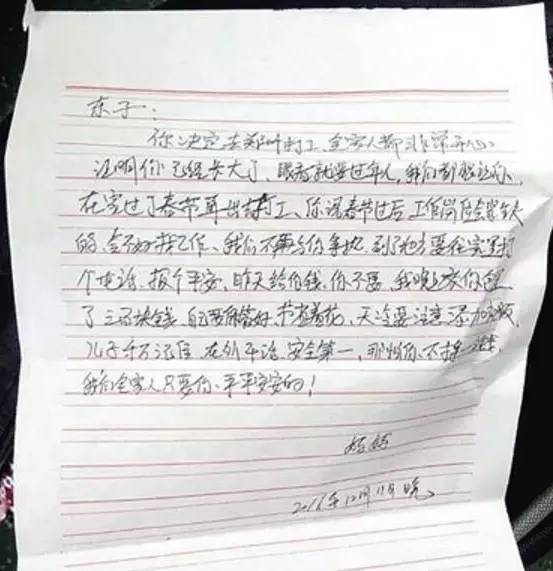 东子:
你决定去郑州打工、全家人都非常开心
证明你已经长大了,眼看就要过年了,我们都劝说你,
在家过了春节再出去打工、你说春节过后工作岗位会
的,会不好找工作、我们不再与你争执,到了地方要往家里打
个电话,报个平安,昨天给你钱,你不要,我晚上给你包
了三百块钱,自己要保管好,节省着花,天冷要注意添加衣服,
儿子千万记住,在外平安、安全第一,那怕你不挣
我们全家人只要你平平安安的!
妈妈
2016年12月11日晚